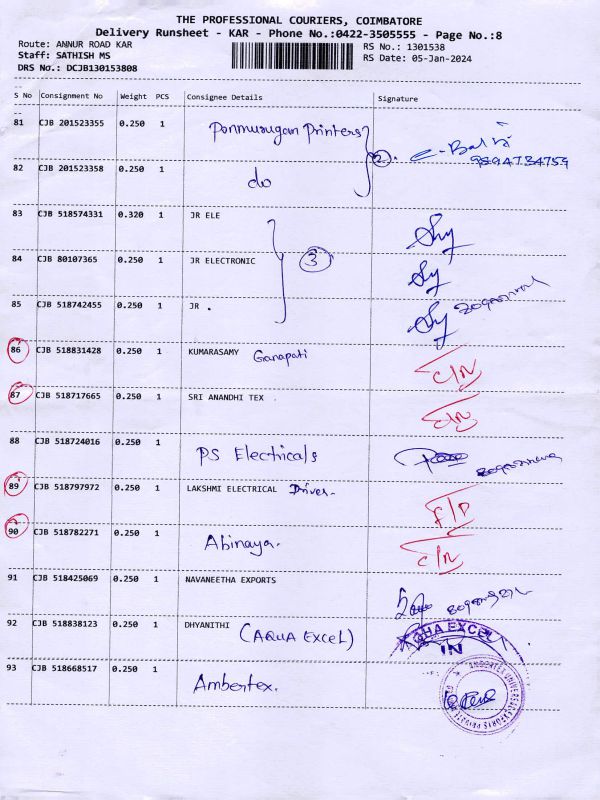 THE PROFESSIONAL COURIERS, COIMBATORE
Delivery Runsheet - KAR - Phone No.:0422-3505555 - Page No.:8
Route: ANNUR ROAD KAR
Staff: SATHISH MS
DRS No.: DCJB130153808
RS No.: 1301538
RS Date: 05-Jan-2024
S No Consignment No Weight PCS Consignee Details Signature
81 CJB 201523355 0.250 1 Ponmurugan Printers
2. 9894734759
82 CJB 201523358 0.250 1 do
83 CJB 518574331 0.320 1 JR ELE
84 CJB 80107365 0.250 1 JR ELECTRONIC 3
85 CJB 518742455 0.250 1 JR .
86 CJB 518831428 0.250 1 KUMARASAMY Ganapati C/N
87 CJB 518717665 0.250 1 SRI ANANDHI TEX . C/N
88 CJB 518724016 0.250 1 PS Electricals
89 CJB 518797972 0.250 1 LAKSHMI ELECTRICAL Driver. F/D
90 CJB 518782271 0.250 1 Abinaya. C/N
91 CJB 518425069 0.250 1 NAVANEETHA EXPORTS
92 CJB 518838123 0.250 1 DHYANITHI (AQUA EXCEL)
EXCEL
IN
93 CJB 518668517 0.250 1 Ambertex.